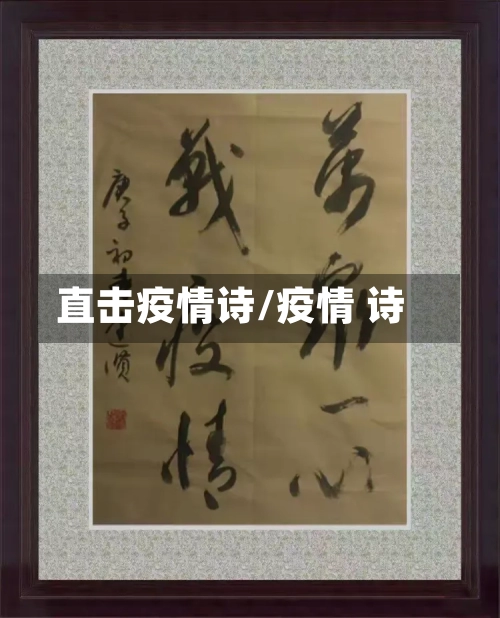 萬眾一心
戰疫情
庚子初春
直击疫情诗/疫情 诗